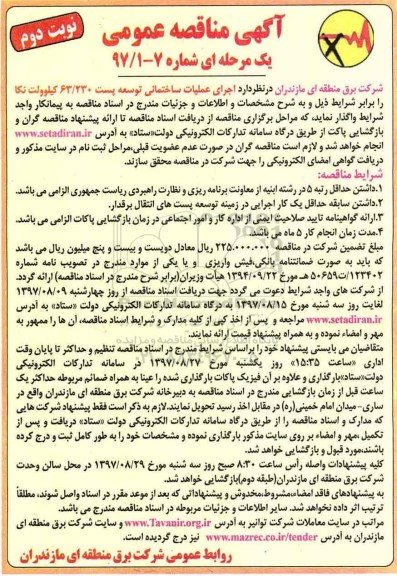 نوبت دوم
آگهی مناقصه عمومی
یک مرحله ای شماره ۷-۹۷/۱
شرکت برق منطقه ای مازندران درنظردارد اجرای عملیات ساختمانی توسعه پست ۶۳/۲۳۰ کیلوولت نکا
را برابر شرایط ذیل و به شرح مشخصات و اطلاعات و جزئیات مندرج در اسناد مناقصه به پیمانکار واجد
شرایط واگذار نماید، که مراحل برگزاری مناقصه از دریافت اسناد مناقصه تا ارائه پیشنهاد مناقصه گران و
بازگشایی پاکت از طریق درگاه سامانه تدارکات الکترونیکی دولت«ستاد» به آدرس www.setadiran.ir
انجام خواهد شد و لازم است مناقصه گران در صورت عدم عضویت قبلی،مراحل ثبت نام در سایت مذکور و
دریافت گواهی امضای الکترونیکی را جهت شرکت در مناقصه محقق سازند.
شرایط مناقصه:
۱.داشتن حداقل رتبه ۵ در رشته ابنیه از معاونت برنامه ریزی و نظارت راهبردی ریاست جمهوری الزامی می باشد.
۲.داشتن سابقه حداقل یک کار اجرایی در زمینه توسعه پست های انتقال برقدار.
۳.ارائه گواهینامه تایید صلاحیت ایمنی از اداره کار و امور اجتماعی در زمان بازگشایی پاکات الزامی می باشد.
۴.مدت زمان انجام کار ۵ ماه می باشد.
مبلغ تضمین شرکت در مناقصه ۲۲۵.۰۰۰.۰۰۰ ریال معادل دویست و بیست و پنج میلیون ریال می باشد
که باید به صورت ضمانتنامه بانکی،فیش واریزی و یا یکی از موارد مندرج در تصویب نامه شماره
۱۲۳۴۰۲/ت۵۰۶۵۹ هـ مورخ ۱۳۹۴/۰۹/۲۲ هیأت وزیران(برابر شرح مندرج در اسناد مناقصه) ارائه گردد.
از شرکت های واجد شرایط دعوت می گردد جهت دریافت اسناد مناقصه از روز چهارشنبه ۱۳۹۷/۰۸/۰۹
لغایت روز سه شنبه مورخ ۱۳۹۷/۰۸/۱۵ به درگاه سامانه تدارکات الکترونیکی دولت «ستاد» به آدرس
www.setadiran.ir مراجعه و پس از اخذ کپی از کلیه مدارک و شرایط اسناد مناقصه، آن ها را ممهور به
مهر و امضاء نموده و به همراه پیشنهاد قیمت ارائه نمایند.
متقاضیان می بایستی پیشنهاد خود را براساس شرایط مندرج در اسناد مناقصه تنظیم و حداکثر تا پایان وقت
اداری «ساعت ۱۵:۳۵» روز یکشنبه مورخ ۱۳۹۷/۰۸/۲۷ در سامانه تدارکات الکترونیکی
دولت«ستاد»بارگذاری و علاوه بر آن فیزیک پاکات بارگذاری شده را عینا به همراه ضمائم مربوطه حداکثر یک
ساعت قبل از زمان بازگشایی مندرج در اسناد مناقصه به دبیرخانه شرکت برق منطقه ای مازندران واقع در
ساری-میدان امام خمینی(ره) در مقابل اخذ رسید تحویل نمایند.لازم به ذکر است فقط پیشنهاد شرکت هایی
که مدارک و اسناد مناقصه را از طریق درگاه سامانه تدارکات الکترونیکی دولت «ستاد» دریافت و پس از
تکمیل ،مهر و امضاء بر روی سایت مذکور بارگذاری نموده و مشخصات خود را به طور کامل ثبت و درج کرده
باشند،مورد قبول و بازگشایی خواهد شد.
کلیه پیشنهادات واصله رأس ساعت ۸:۳۰ صبح روز سه شنبه مورخ ۱۳۹۷/۰۸/۲۹ در محل سالن وحدت
شرکت برق منطقه ای مازندران(طبقه دوم)بازگشایی خواهد شد.
به پیشنهادهای فاقد امضاء،مشروط،مخدوش و پیشنهاداتی که بعد از موعد مقرر در اسناد واصل شوند، مطلقاً
ترتیب اثر داده نخواهد شد. سایر اطلاعات و جزئیات مربوطه در اسناد مناقصه مندرج می باشد.
مراتب در سایت معاملات شرکت توانیر به آدرس www.Tavanir.org.ir و سایت شرکت برق منطقه ای
مازندران به آدرس www.mazrec.co.ir/tender نیز درج گردیده است.
روابط عمومی شرکت برق منطقه ای مازندران